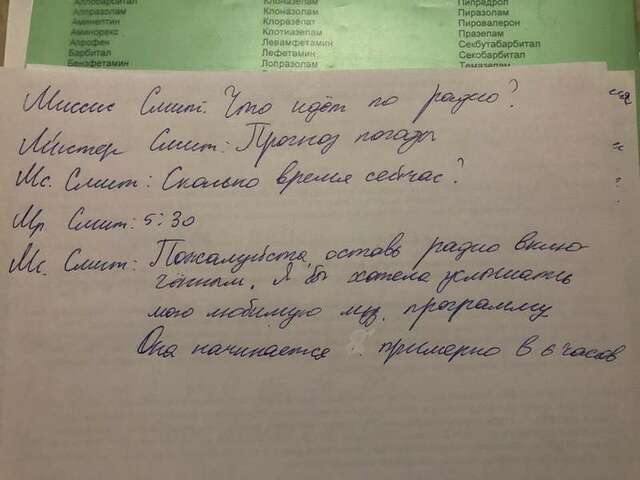 Аллобарбитал Клоназепам Пипрадрол
Алпразолам Клоназолам Пиразолам
Аминептин Клоразепат Пировалерон
Аминорекс Клотиазепам Празепам
Апрофен Левамфетамин Секбутабарбитал
Барбитал Лефетамин Секобарбитал
Бензфетамин Лопразолам Темазепам
Миссис Смит: Что идёт по радио?
Мистер Смит: Прогноз погоды
Мс. Смит: Сколько время сейчас?
Мр Смит: 5:30
Мс. Смит: Пожалуйста, оставь радио вклю-
чённым. Я бы хотела услышать
мою любимую муз. программу
Она начинается примерно в 6 часов